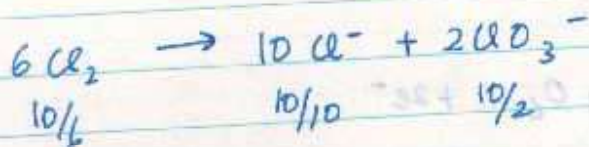 6 Cl₂ → 10 Cl⁻ + 2ClO₃⁻
10/6 10/10 10/2